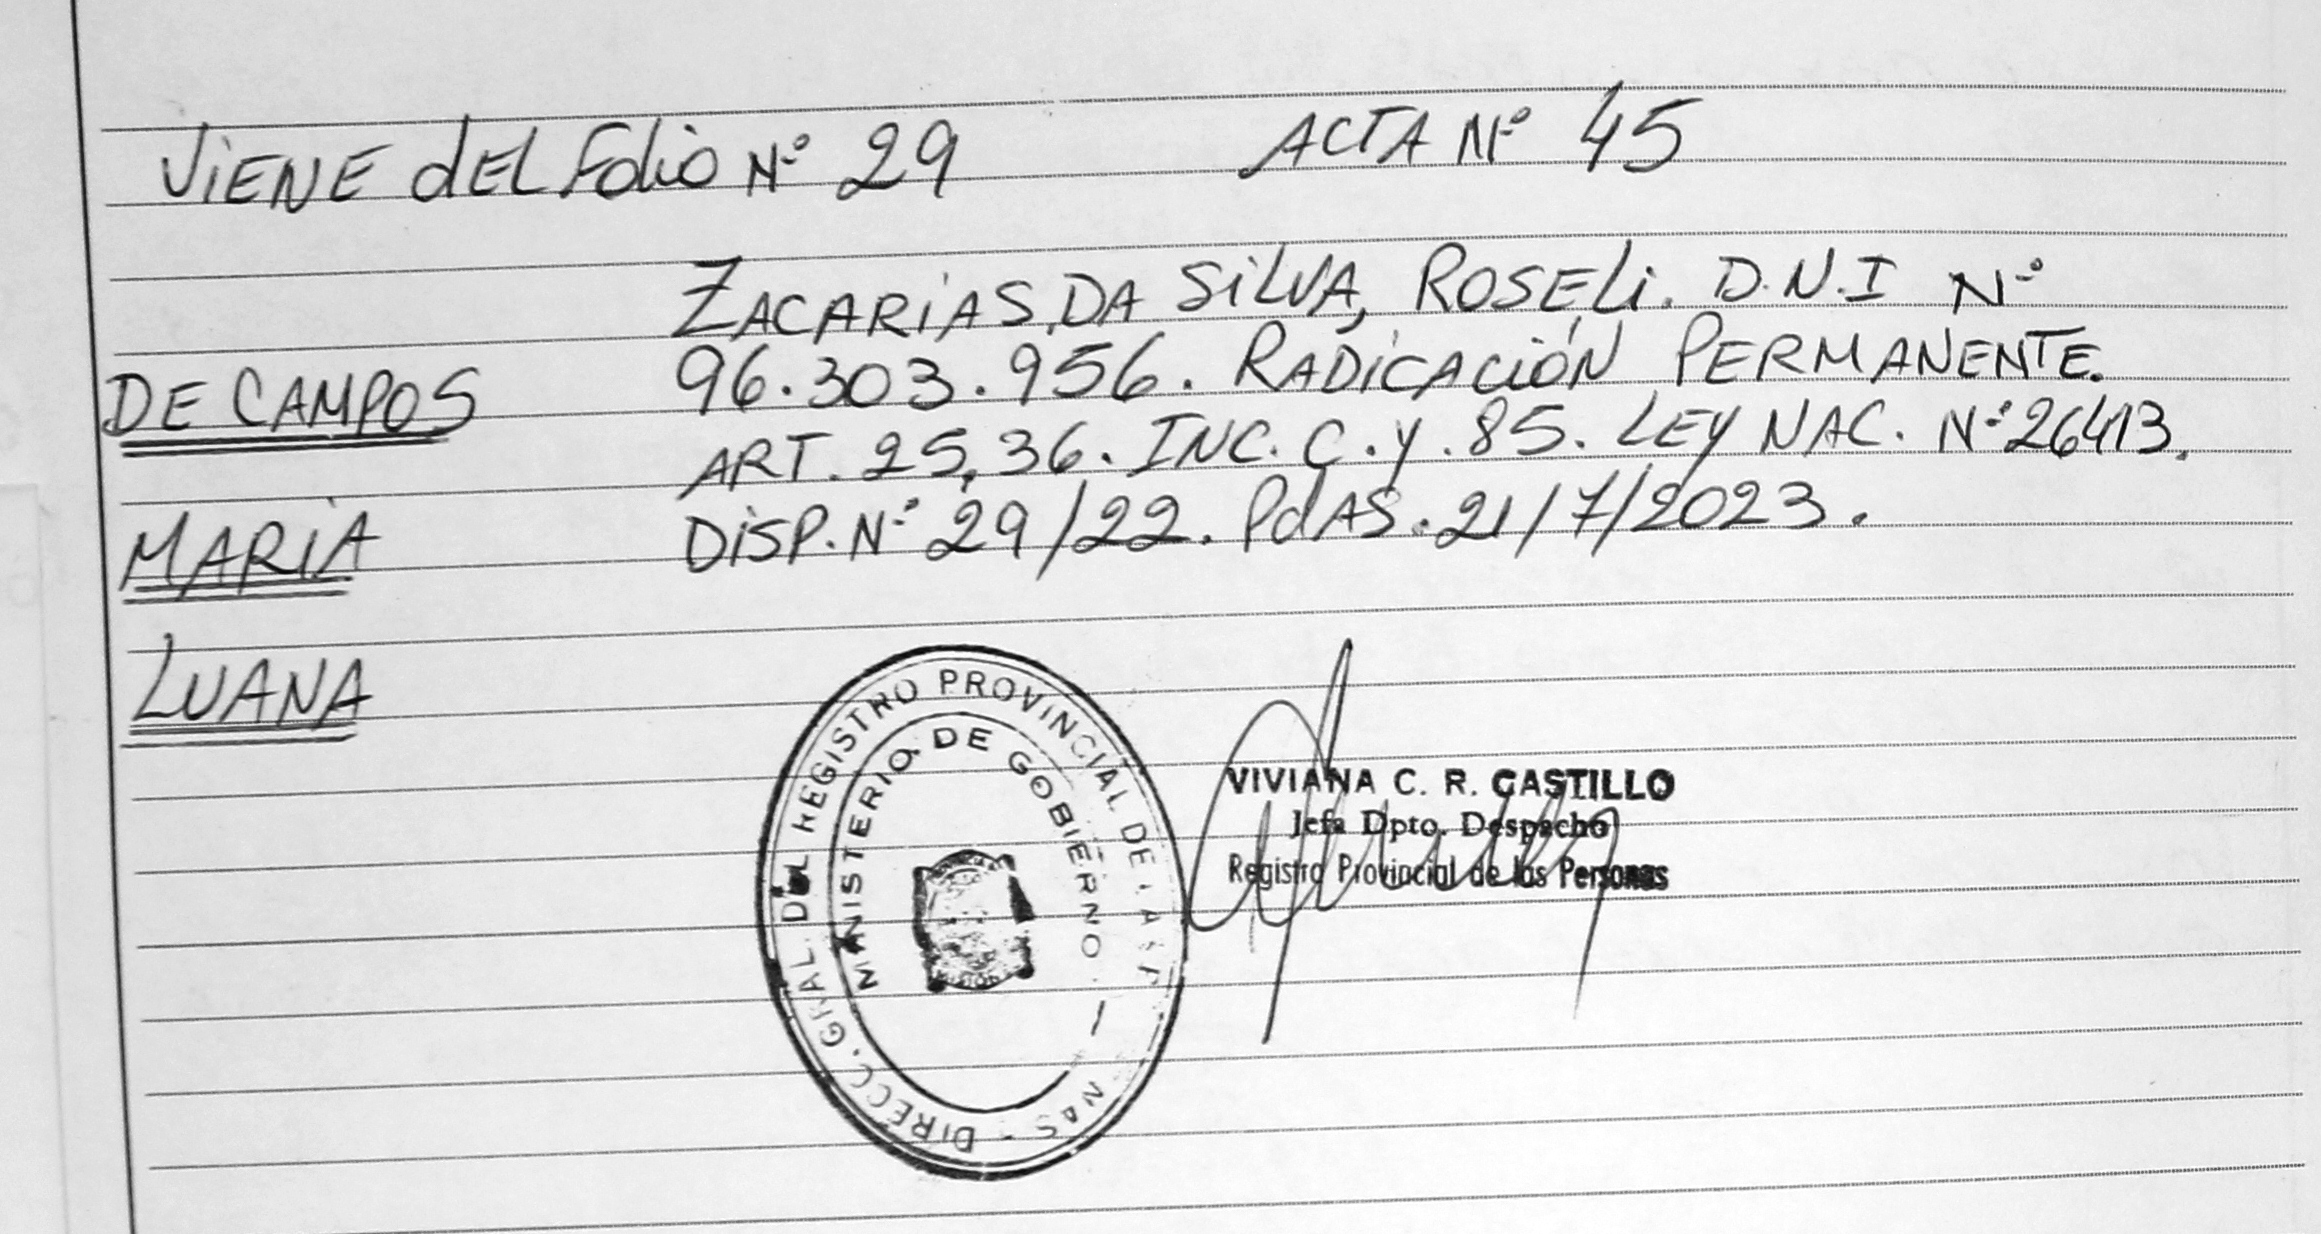 ViENE dEL Folio Nº 29 ACTA Nº 45
ZACARiAS, DA SiLVA, ROSELi. D.N.I Nº
96.303.956. RADiCACióN PERMANENTE.
ART. 25, 36. INC. C. Y. 85. LEY NAC. Nº 26413.
DiSP. Nº 29/22. PdAS. 21/7/2023.
DE CAMPOS
MARiA
LUANA
DIRECC. GRAL. DEL REGISTRO PROVINCIAL DE LAS
MINISTERIO DE GOBIERNO
VIVIANA C. R. CASTILLO
Jefa Dpto. Despacho
Registro Provincial de las Personas